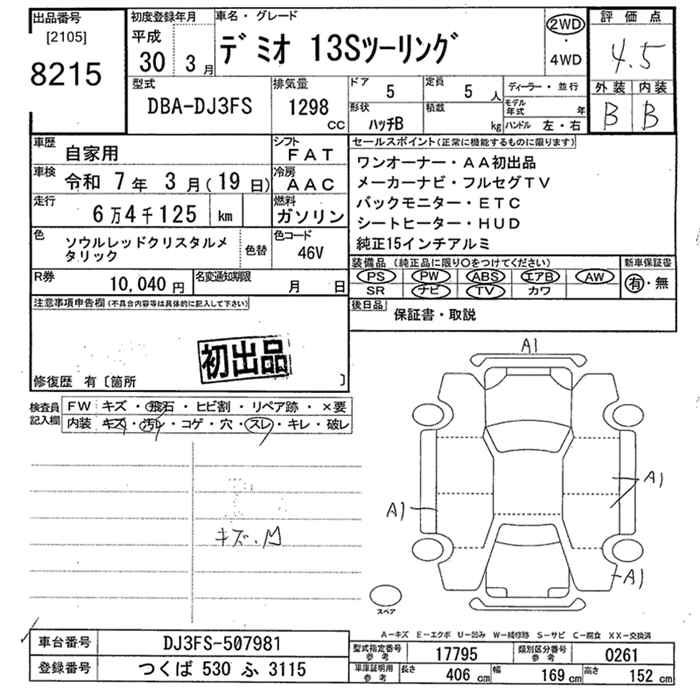 出品番号
[2105]
8215
初度登録年月
平成
30 3月
車名・グレード
デミオ 13Sツーリング
2WD
・
4WD
評価点
4.5
外装 内装
B B
型式
DBA-DJ3FS
排気量
1298
CC
ドア
5
定員
5 人
形状
ハッチB
積載
kg
ディーラー・並行
モデル年式 年
ハンドル 左・右
車歴
自家用
シフト
FAT
車検
令和 7年 3月(19日)
冷房
AAC
走行
6万4千125 km
燃料
ガソリン
色
ソウルレッドクリスタルメタリック
色替
色コード
46V
R券
10,040円
名変通知期限
月 日
セールスポイント(正常に機能するものに限ります)
ワンオーナー・AA初出品
メーカーナビ・フルセグTV
バックモニター・ETC
シートヒーター・HUD
純正15インチアルミ
装備品(純正品に限り○をつけてください)
PS PW ABS エアB AW
SR ナビ TV カワ
新車保証書
有・無
後日品
保証書・取説
注意事項申告欄(不具合内容等は具体的に記入して下さい)
初出品
修復歴 有〔箇所 〕
検査員記入欄
FW キズ・飛石・ヒビ割・リペア跡・×要
内装 キズ・汚レ・コゲ・穴・スレ・キレ・破レ
キズ・凹
A1
A1
A1
A1
スペア
A-キズ E-エクボ U-凹み W-補修跡 S-サビ C-腐食 XX-交換済
車台番号 DJ3FS-507981
登録番号 つくば 530 ふ 3115
型式指定番号 参考 17795 類別区分番号 参考 0261
車庫証明用 参考 長さ 406 cm 幅 169 cm 高さ 152 cm